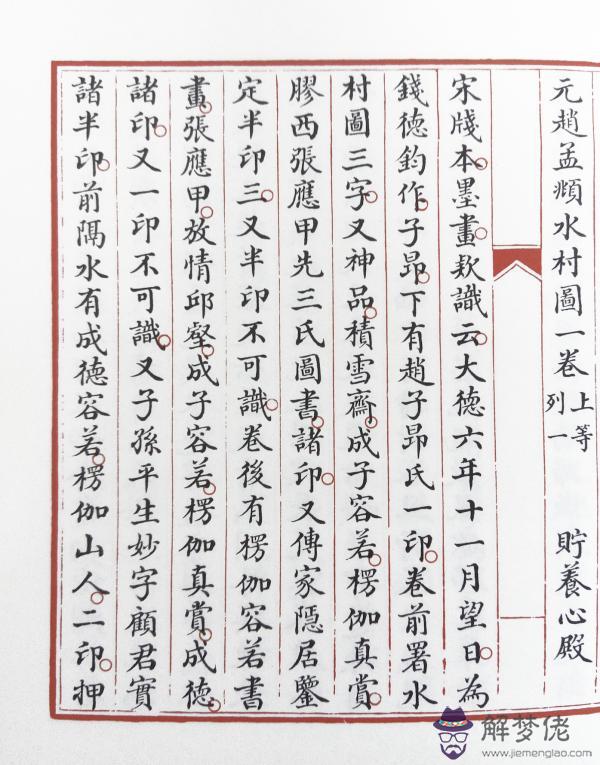 元趙孟頫水村圖一卷 上等 列一 貯養心殿
宋牋本。墨畫。欵識云。大德六年十一月望日。為
錢德鈞作。子昂。下有趙子昂氏一印。卷前署水
村圖三字。又神品。積雪齋。成子容若。楞伽真賞。
膠西張應甲先三氏圖書。諸印。又傳家隱居鑒
定半印三。又半印不可識。卷後有楞伽容若書
畫。張應甲。放情邱壑。成子容若。楞伽真賞。成德。
諸印。又一印不可識。又子孫平生妙字顧君實
諸半印。前隅水有成德容若。楞伽山人。二印。押
解梦佬
www.jiemenglao.com